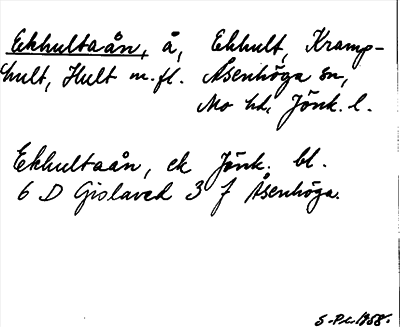 Ekhultaån, å, Ekhult, Kramp-
hult, Hult m.fl. Åsenhöga sn,
Mo hd, Jönk. l.
Ekhultaån, ek Jönk. bl.
6 D Gislaved 3 f Åsenhöga.
1958.